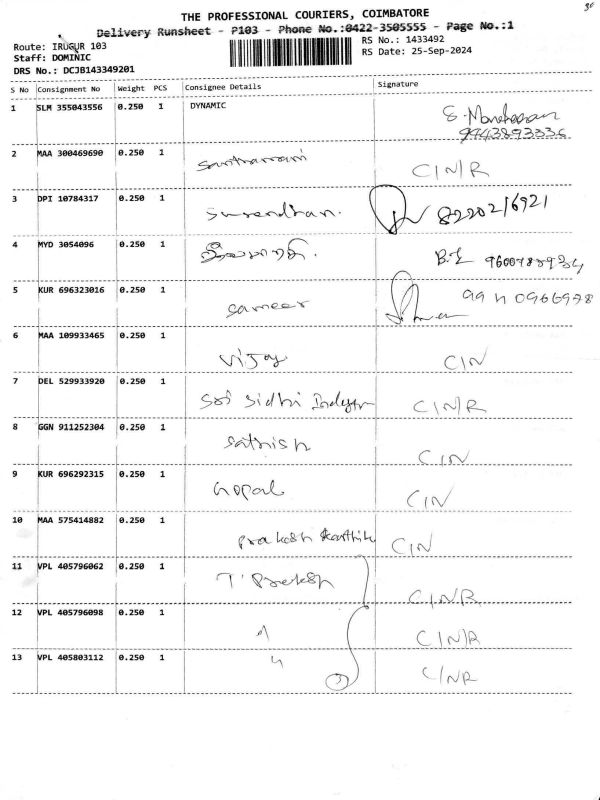 THE PROFESSIONAL COURIERS, COIMBATORE
Delivery Runsheet - P103 - Phone No.:0422-3505555 - Page No.:1
Route: IRUGUR 103
RS No.: 1433492
Staff: DOMINIC
RS Date: 25-Sep-2024
DRS No.: DCJB143349201
S No Consignment No Weight PCS Consignee Details Signature
1 SLM 355043556 0.250 1 DYNAMIC
9943893336
2 MAA 300469690 0.250 1 C/N/R
3 DPI 10784317 0.250 1 Surendhan.
4 MYD 3054096 0.250 1
5 KUR 696323016 0.250 1 Sameer
6 MAA 109933465 0.250 1 Vijay C/N
7 DEL 529933920 0.250 1 Sri Sidhi C/N/R
8 GGN 911252304 0.250 1 Sathish C/N
9 KUR 696292315 0.250 1 Gopal C/N
10 MAA 575414882 0.250 1 Prakash Karthik C/N
11 VPL 405796062 0.250 1 T. Prakash C/N/R
12 VPL 405796098 0.250 1 " C/N/R
13 VPL 405803112 0.250 1 " 3 C/N/R